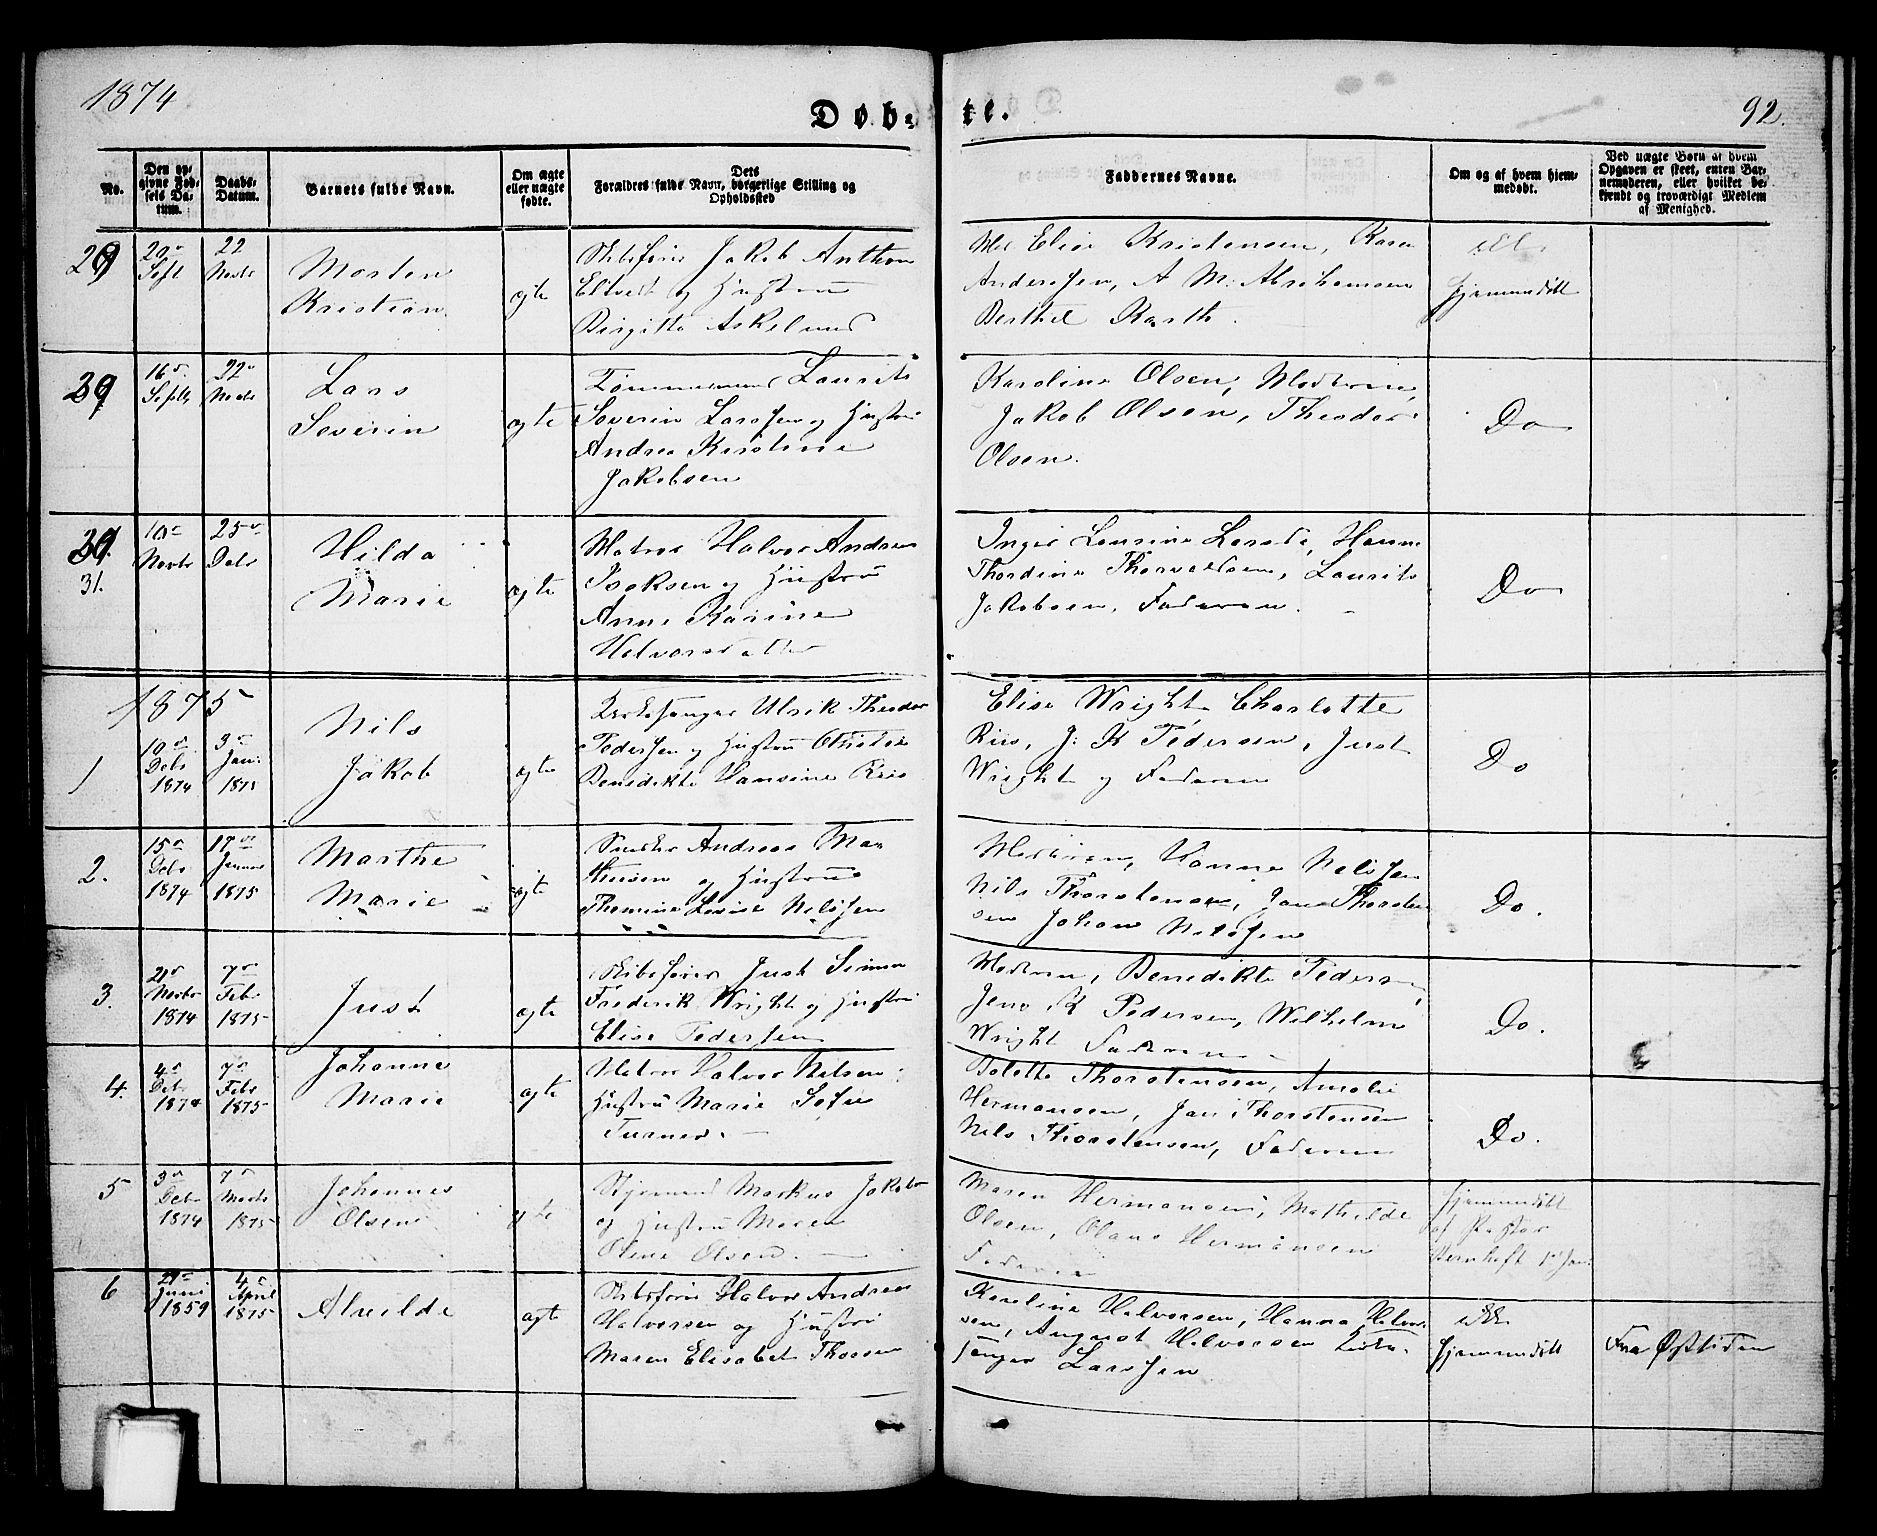 1874
Døb-
te.
92.
No.
Den op-
givne Fød-
sels Da-
tum.
Daabs-
Datum.
Barnets fulde Navn.
Om ægte
eller uægte
fødte.
Dets
Forældres fulde Navn, borgerlige Stilling og
Opholdssted
Faddernes Navne.
Om og af hvem hjem-
medøbt.
Ved uægte Børn af hvem
Opgaven er skeet, enten Bar-
nemoderen, eller hvilket be-
kjendt og troværdigt Medlem
af Menighed.
29
20de
Sept
22
Novbr
Morten
Kristian
ægte
Skibsfører Jakob Anthon
og Hustru
Birgitte Askelund
Elise Kristensen, Karen
Anderssen, A M. Abrahamsen
Berthel Karth.
ikke
hjemmedøbt
30
16de
Septbr
22de
Novbr
Lars
Severin
ægte
Tømmermand Laurits
Severin Larssen og Hustru
Andrea Kirstine
Jakobsen
Karoline Olsen, Moderen,
Jakob Olsen, Theodor
Olsen.
Do
31.
10de
Novbr
25de
Debr
Hilda
Marie
ægte
Matros Halvor Andreas
Isaksen og Hustru
Anne Karine
Halvorsdatter
Inger Laurine Larsd., Hanne
Thordine Thorvaldsen, Laurits
Jakobsen, Faderen.
Do
1875
1
10de
Debr
1874
3de
Jan:
1875
Nils
Jakob
ægte
Kirkesanger Ulrik Theodor
Pedersen og Hustru
Benedikte Hansine Riis
Elise Wright, Charlotte
Riis, J. K Pedersen, Just
Wright og Faderen
Do
2.
15de
Debr
1874
17de
Januar
1875
Marthe
Marie
ægte
Snedker Andreas Ma-
thisen og Hustrue
Thomine Lovise Nilssen
Moderen, Hanna Nilssen
Nils Thorstensen, Jan Thorsten
sen Johan Nilssen
Do.
3.
21de
Novbr
1874
7de
Febr
1875
Just
ægte
Skibsfører Just Simon
Frederik Wright og Hustru
Elise Pedersen
Moderen, Benedikte Pedersen,
Jens K Pedersen, Wilhelm
Wright Faderen
Do.
4.
4de
Debr
1874
7de
Febr
1875
Johanne
Marie
ægte
Matros Halvor Nilsen
Hustru Marie Sofie
Turner.
Bolette Thorstensen, Amalie
Hermansen, Jan Thorstensen
Nils Thorstensen, Faderen
Do.
5
3de
Debr
1874
7de
Marts
1875
Johannes
Olsen
ægte
Styrmand Markus Jakobsen
og Hustru Maren
Olene Olsen.
Maren Hermansen, Mathilde
Olsen, Olaus Hermansen
Faderen
Hjemmedøbt
af Pastor
6
1859
4de
April
1875
Alvilde
ægte
Skibsfører Halvor Andreas
Halvorsen og Hustru
Maren Elisabet Thorsen
Karoline Halvorsen, Hanna Halvor-
sen, August Halvorsen Kirke-
sanger Larssen
ikke
hjemmedøbt
Fra Østsiden